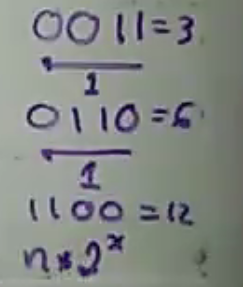 0011=3
1
0110=6
1
1100=12
n*2^x